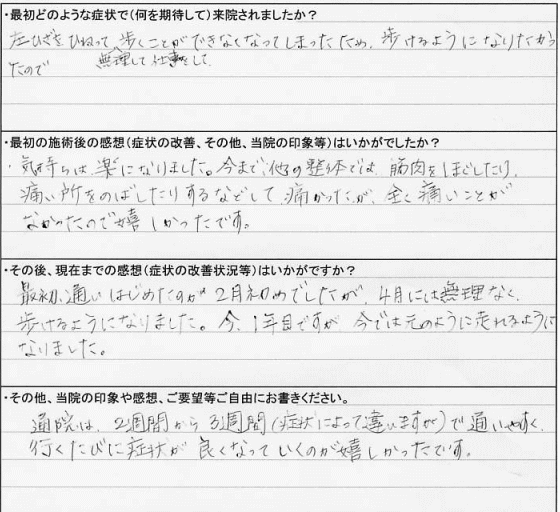 ・最初どのような症状で(何を期待して)来院されましたか？
左ひざをひねって、歩くことができなくなってしまったため、歩けるようになりたかっ
たので 無理して仕事をして
・最初の施術後の感想(症状の改善、その他、当院の印象等)はいかがでしたか？
・気持ちは、楽になりました。今まで、他の整体では、筋肉をほどしたり、
痛い所をのばしたりするなどして、痛かったが、全く痛いことが
なかったので嬉しかったです。
・その後、現在までの感想(症状の改善状況等)はいかがですか？
最初、通いはじめたのが2月初めでしたが、4月には無理なく、
歩けるようになりました。今、1年目ですが、今では元のように走れるように
なりました。
・その他、当院の印象や感想、ご要望等ご自由にお書きください。
通院は、2週間から3週間(症状によって違いますが)で通いやすく、
行くたびに症状が良くなっていくのが嬉しかったです。